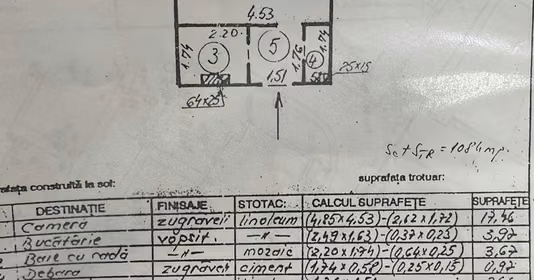 4.53
2.20
1.74
3
5
1.76
4
1.74
1.51
25x15
64x25
Sc + STR = 108.4 mp.
rafața construită la sol:
suprafața trotuar:
DESTINAȚIE FINISAJE STOTAC: CALCUL SUPRAFEȚE SUPRAFEȚE
Cameră zugraveli linoleum (4,85x4,53)-(2,62x1,72) 17,46
Bucătărie vopsit. -//- (2,49x1,63)-(0,37x0,25) 3,97
Baie cu cadă -//- mozaic (2,20x1,74)-(0,64x0,25) 3,67
Debara zugraveli ciment (1,74x0,58)-(0,25x0,15) 0,97